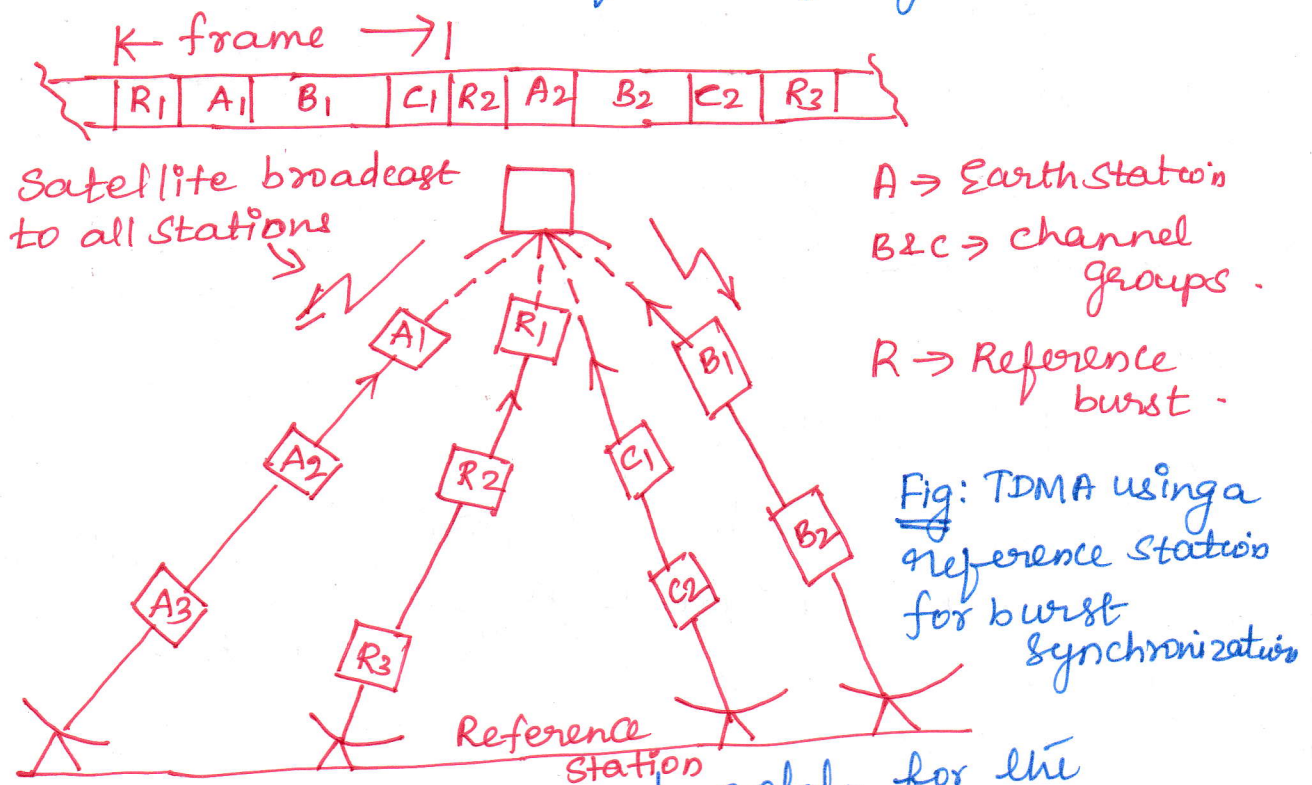 frame
R1 A1 B1 C1 R2 A2 B2 C2 R3
Satellite broadcast
to all Stations
A → Earth Station
B&C → channel
groups.
R → Reference
burst.
A1
R1
B1
A2
R2
C1
B2
A3
C2
R3
Fig: TDMA using a
reference station
for burst
synchronization
Reference
Station
for the